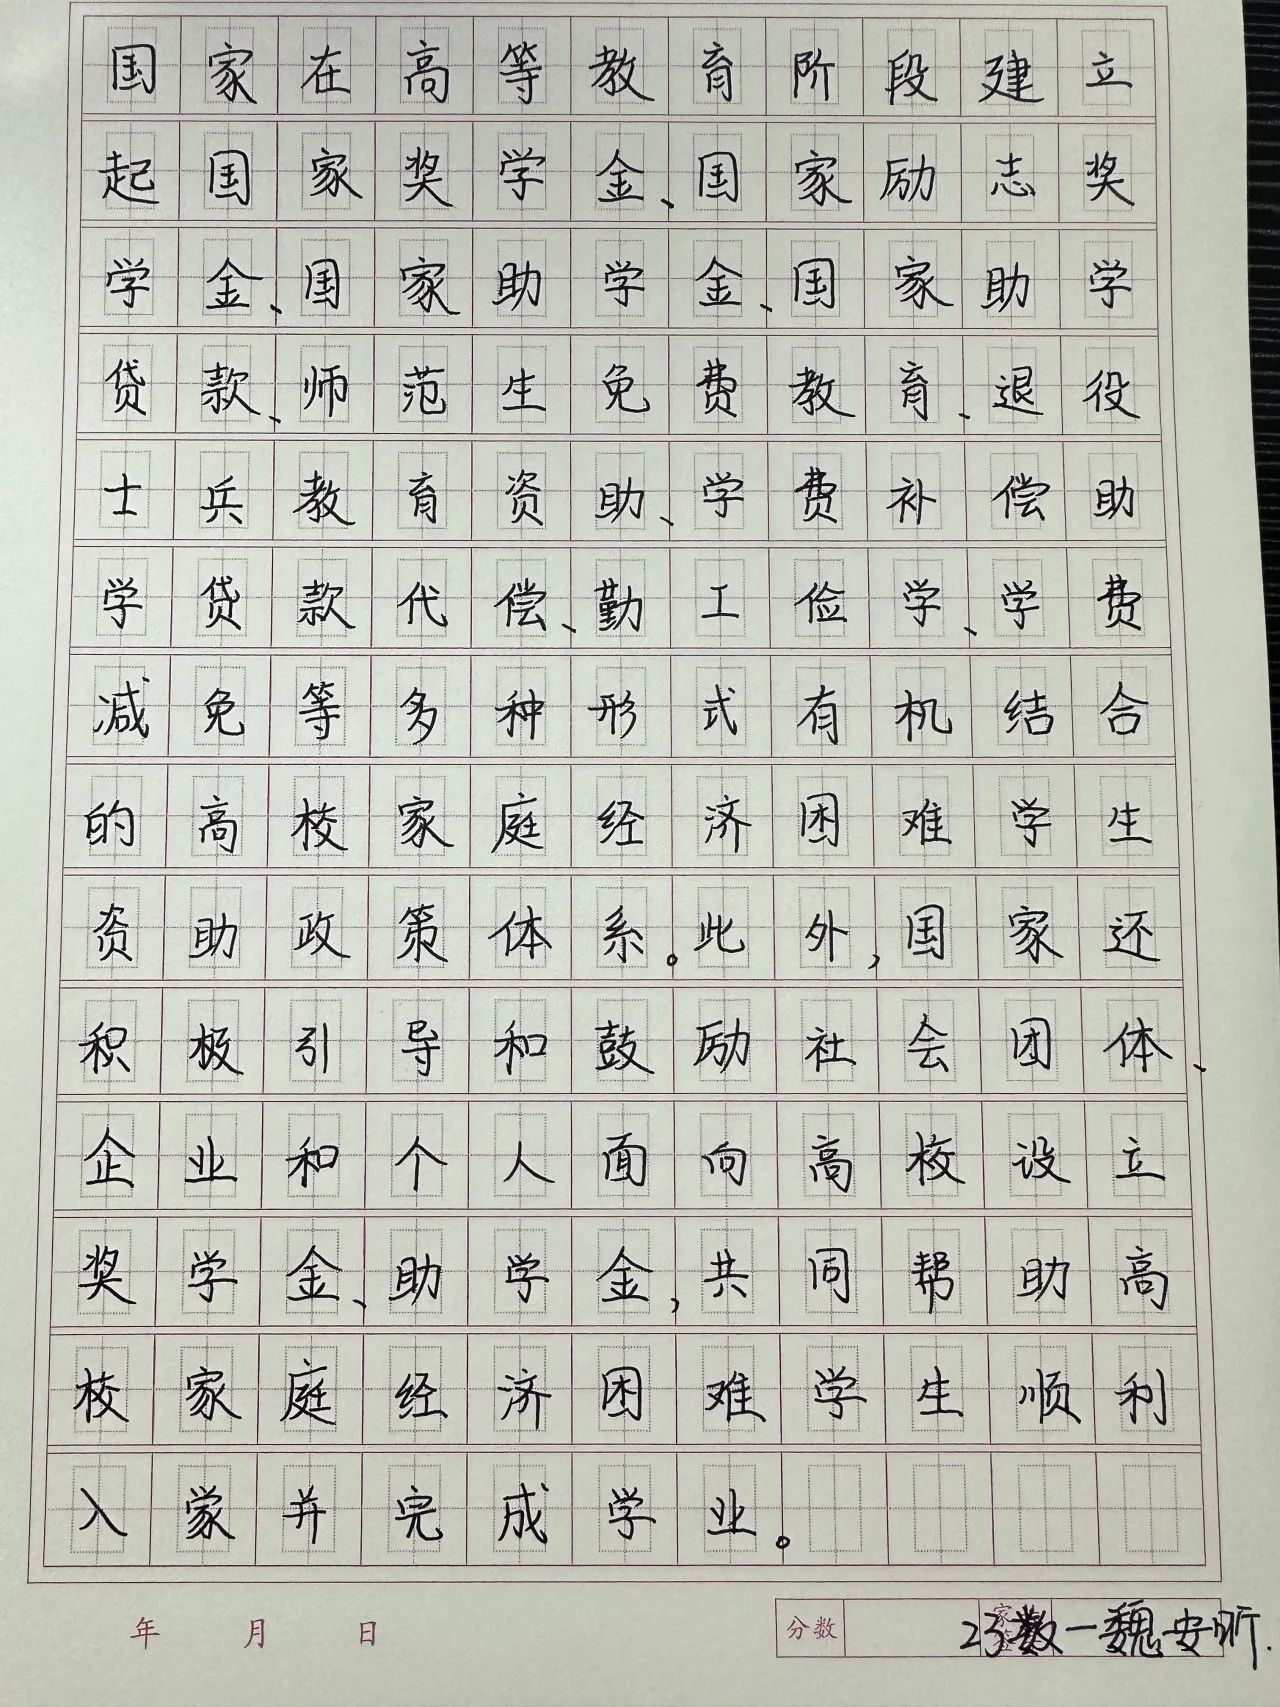 国家在高等教育阶段建立
起国家奖学金、国家励志奖
学金、国家助学金、国家助学
贷款、师范生免费教育、退役
士兵教育资助、学费补偿助
学贷款代偿、勤工俭学、学费
减免等多种形式有机结合
的高校家庭经济困难学生
资助政策体系。此外,国家还
积极引导和鼓励社会团体、
企业和个人面向高校设立
奖学金、助学金,共同帮助高
校家庭经济困难学生顺利
入并完成学业。
年 月 日 分数 23数一魏安昕.